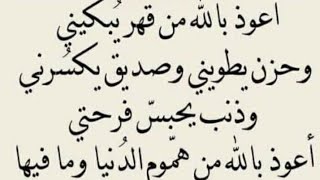 اعوذ بالله من قهر يُبكيني
وحزن يطويني وصديق يكسُرني
وذنب يحبسّ فرحتي
أعوذ بالله من همّوم الدُنيا وما فيها